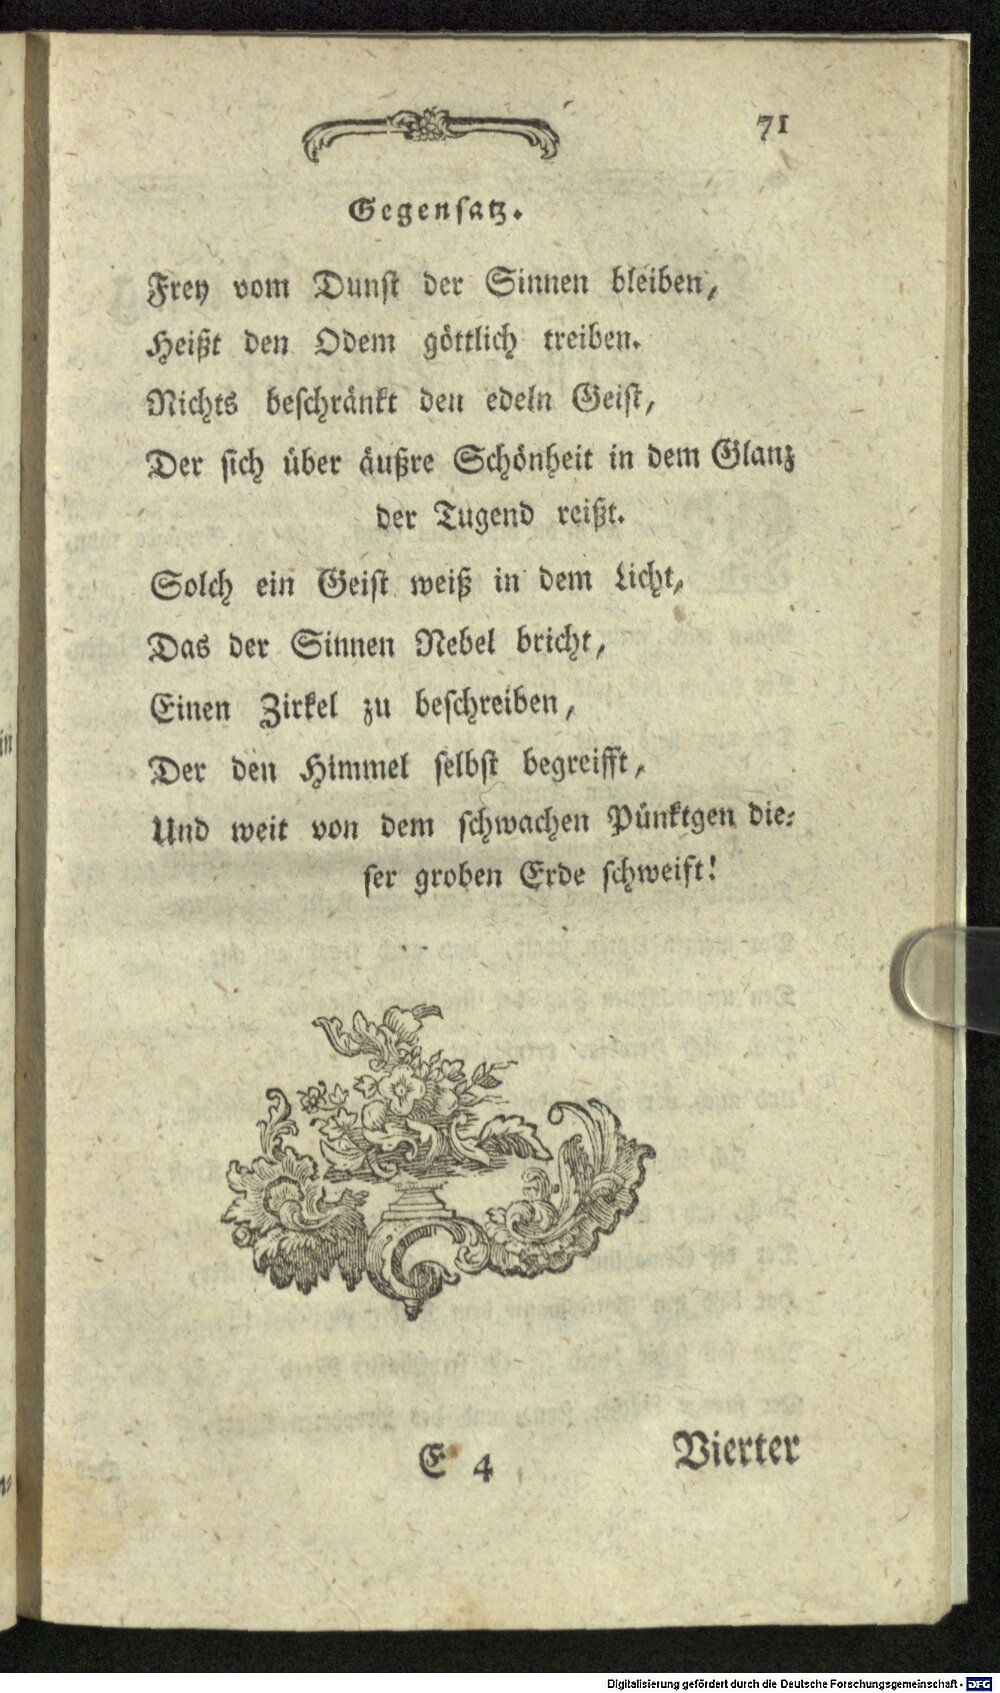 71
Gegensatz.
Frey vom Dunst der Sinnen bleiben,
Heißt den Odem göttlich treiben.
Nichts beschränkt den edeln Geist,
Der sich über äußre Schönheit in dem Glanz
der Tugend reißt.
Solch ein Geist weiß in dem Licht,
Das der Sinnen Nebel bricht,
Einen Zirkel zu beschreiben,
Der den Himmel selbst begreifft,
Und weit von dem schwachen Pünktgen die-
ser groben Erde schweift!
E 4
Vierter
Digitalisierung gefördert durch die Deutsche Forschungsgemeinschaft - DFG